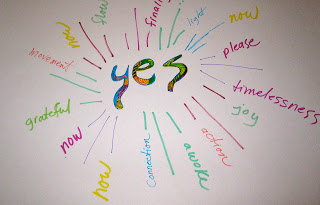 flow
light
now
now
please
movement
yes
timelessness
grateful
joy
now
action
now
Connection
awake